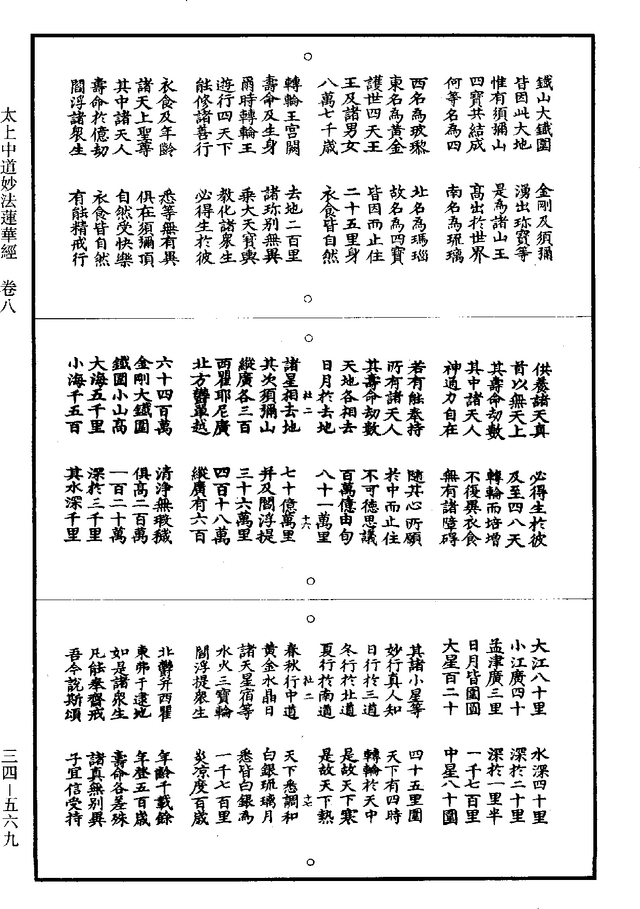 太上中道妙法蓮華經　卷八
三四—五六九
鐵山大鐵圍　金剛及須彌
皆因此大地　湧出珎寶等
惟有須彌山　是為諸山王
四寶共結成　高出於世界
何等名為四　南名為琉璃
西名為玻瓈　北名為瑪瑙
東名為黃金　故名為四寶
護世四天王　皆因而止住
王及諸男女　二十五里身
八萬七千歲　衣食皆自然
轉輪王宮闕　去地二百里
壽命及生身　諸珎別無異
爾時轉輪王　乘大天寶輿
遊行四天下　教化諸衆生
能修諸善行　必得生於彼
衣食及年齡　悉等無有異
諸天上聖尊　俱在須彌頂
其中諸天人　自然受快樂
壽命於億劫　衣食皆自然
閻浮諸衆生　有能精戒行
供養諸天真　必得生於彼
首以無天上　及至四八天
其壽命劫數　轉輪而培增
其中諸天人　不復異衣食
神通力自在　無有諸障碍
若有能奉持　隨其心所願
所有諸天人　於中而止住
其壽命劫數　不可德思議
天地各相去　百萬億由旬
日月於去地　八十一萬里
杜二　十六
諸星相去地　七十億萬里
其次須彌山　并及閻浮提
縱廣各三百　三十六萬里
西瞿耶尼廣　四百十八萬
北方鬱單越　縱廣有六百
六十四百萬　清淨無瑕穢
金剛大鐵圍　俱高二百萬
鐵圍小山高　一百二十萬
大海五千里　深於三千里
小海千五百　其水深千里
大江八十里　水深四十里
小江廣四十　深於二十里
孟津廣三里　深於一里半
日月皆圍圓　一千七百里
大星百二十　中星八十圍
其諸小星等　四十五里圍
妙行真人知　天下有四時
日行於三道　轉輪於天中
冬行於北道　是故天下寒
夏行於南道　是故天下熱
杜二　十七
春秋行中道　天下悉調和
黃金水晶日　白銀琉璃月
諸天星宿等　悉皆白銀為
水火三寶輪　一千七百里
閻浮提衆生　炎凉度百歲
北鬱并西瞿　年齡千載餘
東弗于逮地　年登五百歲
如是諸衆生　壽命各差殊
凡能奉齋戒　諸真無別異
吾今說斯頌　子宜信受持